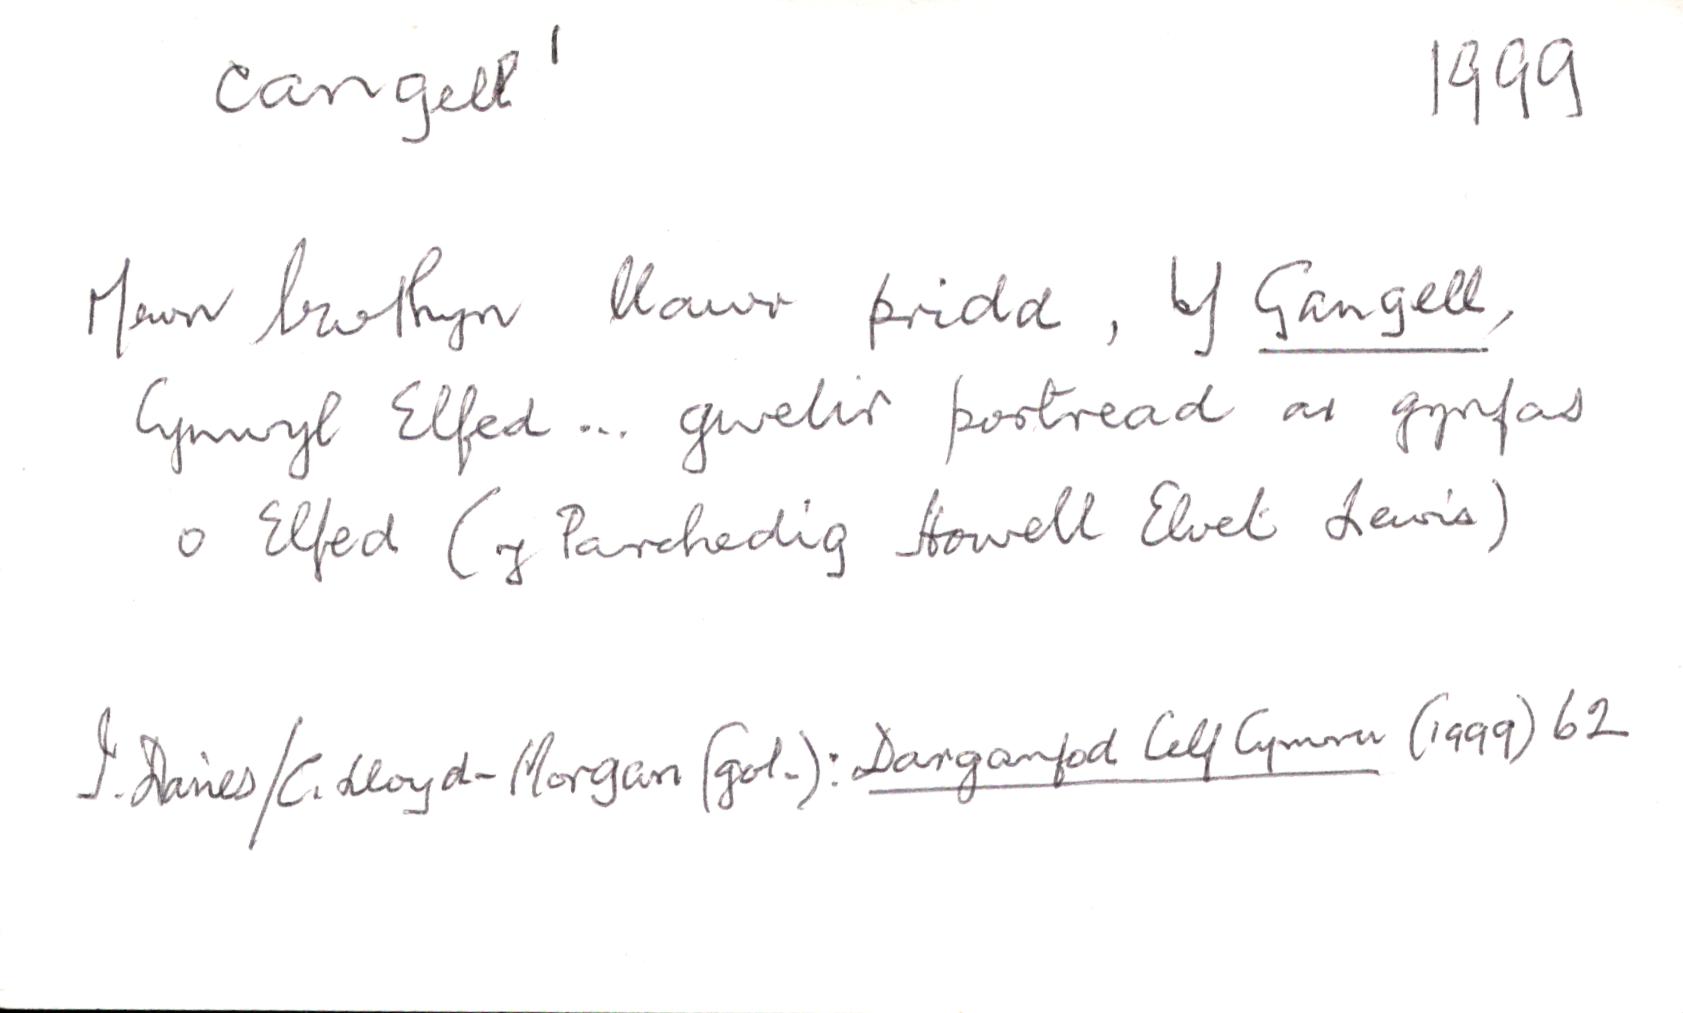 cangell¹ 1999
Mewn bwthyn llawr pridd, y Gangell,
Cynwyl Elfed ... gwelir portread ar gynfas
o Elfed (y Parchedig Howell Elvet Lewis)
I. Davies/C. Lloyd-Morgan (gol.): Darganfod Celf Cymru (1999) 62